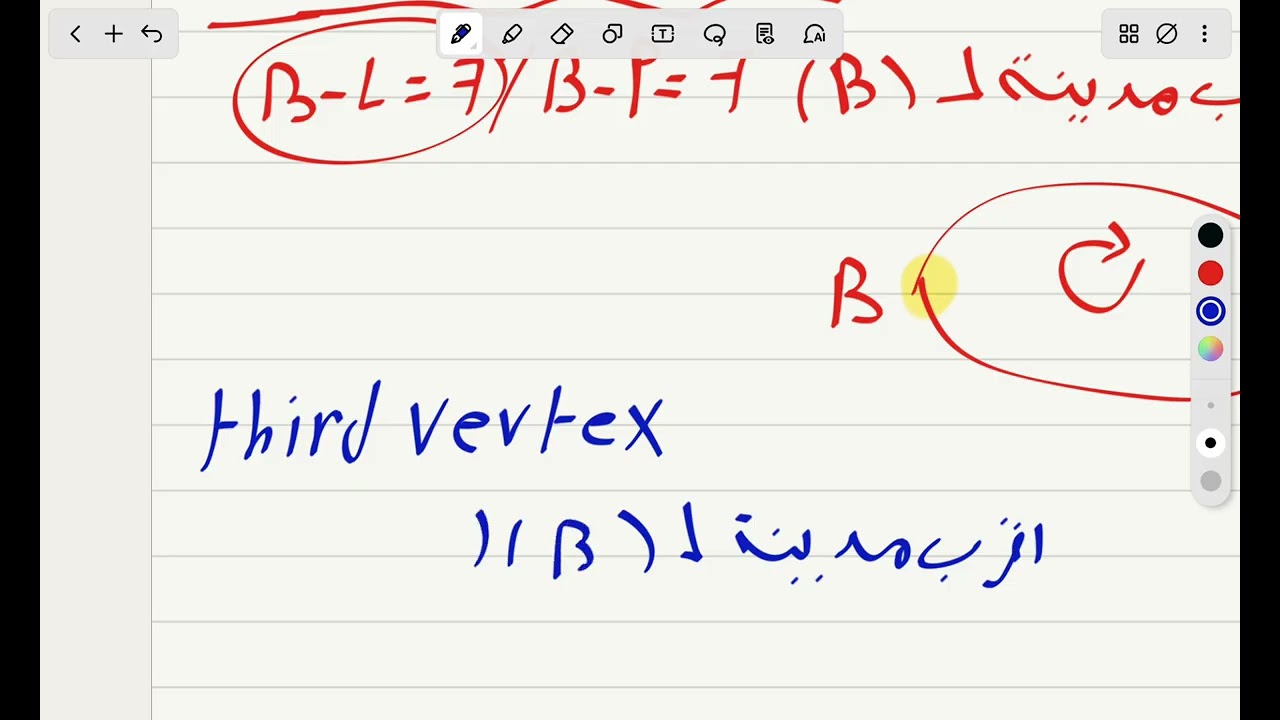 B-L=7/B-P=7 (B) ب مدينة لـ
B
third vertex
اقرب مدينة لـ (B) (